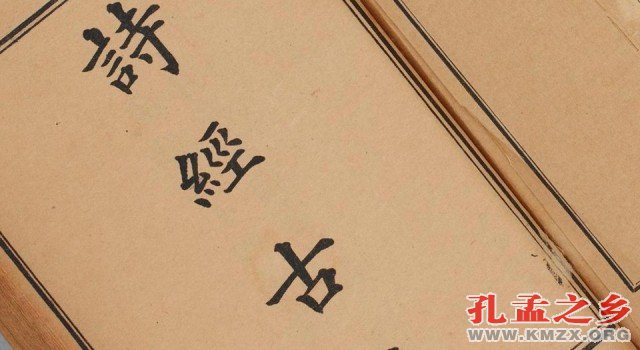 詩經古
孔孟之乡
WWW.KMZX.ORG